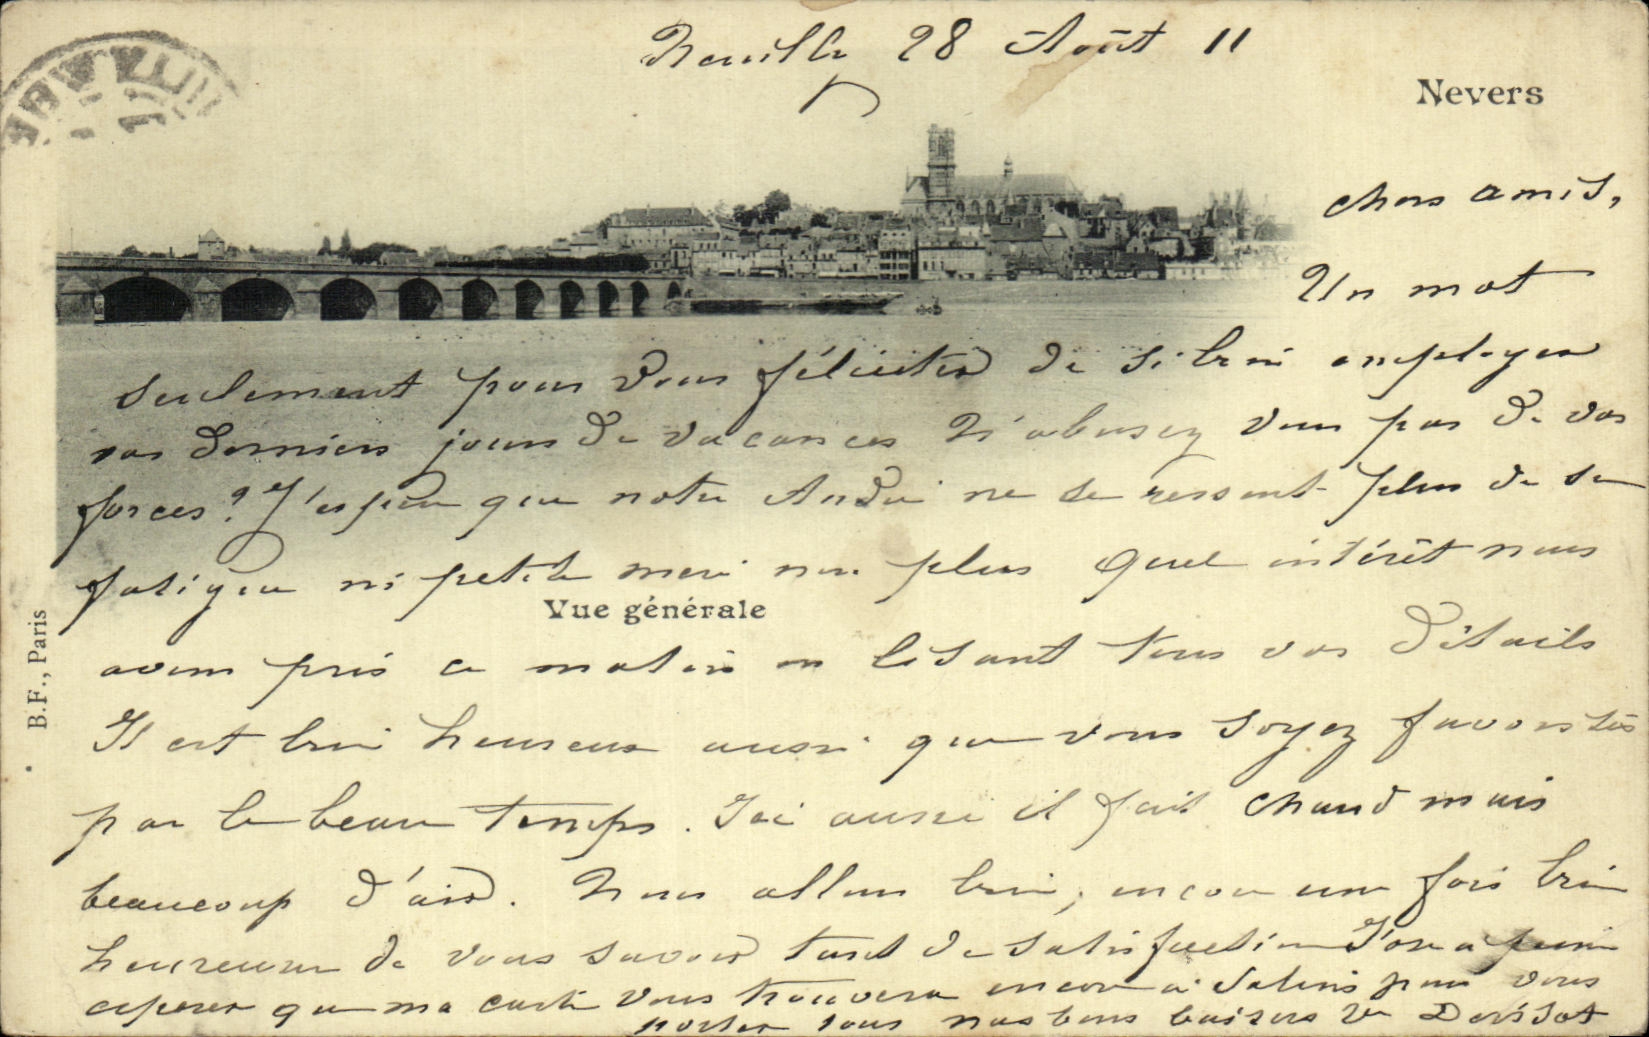 Neuilly 28 Août 11
Nevers
chers amis,
Un mot
seulement pour vous féliciter de si bien employer
vos derniers jours de vacances N'abusez vous pas de vos
forces ? J'espère que notre André ne se ressent plus de sa
fatigue ni petite mère non plus Quel intérêt nous
Vue générale
avons pris ce matin en lisant tous vos détails
Il est bien heureux aussi que vous soyez favorisés
par le beau temps. Ici aussi il fait chaud mais
beaucoup d'air. Nous allons bien, encore une fois bien
heureux de vous savoir tant de satisfaction J'ose à peine
espérer que ma carte vous trouvera encore à Salins pour vous
porter tous nos bons baisers Ve
B.F., Paris